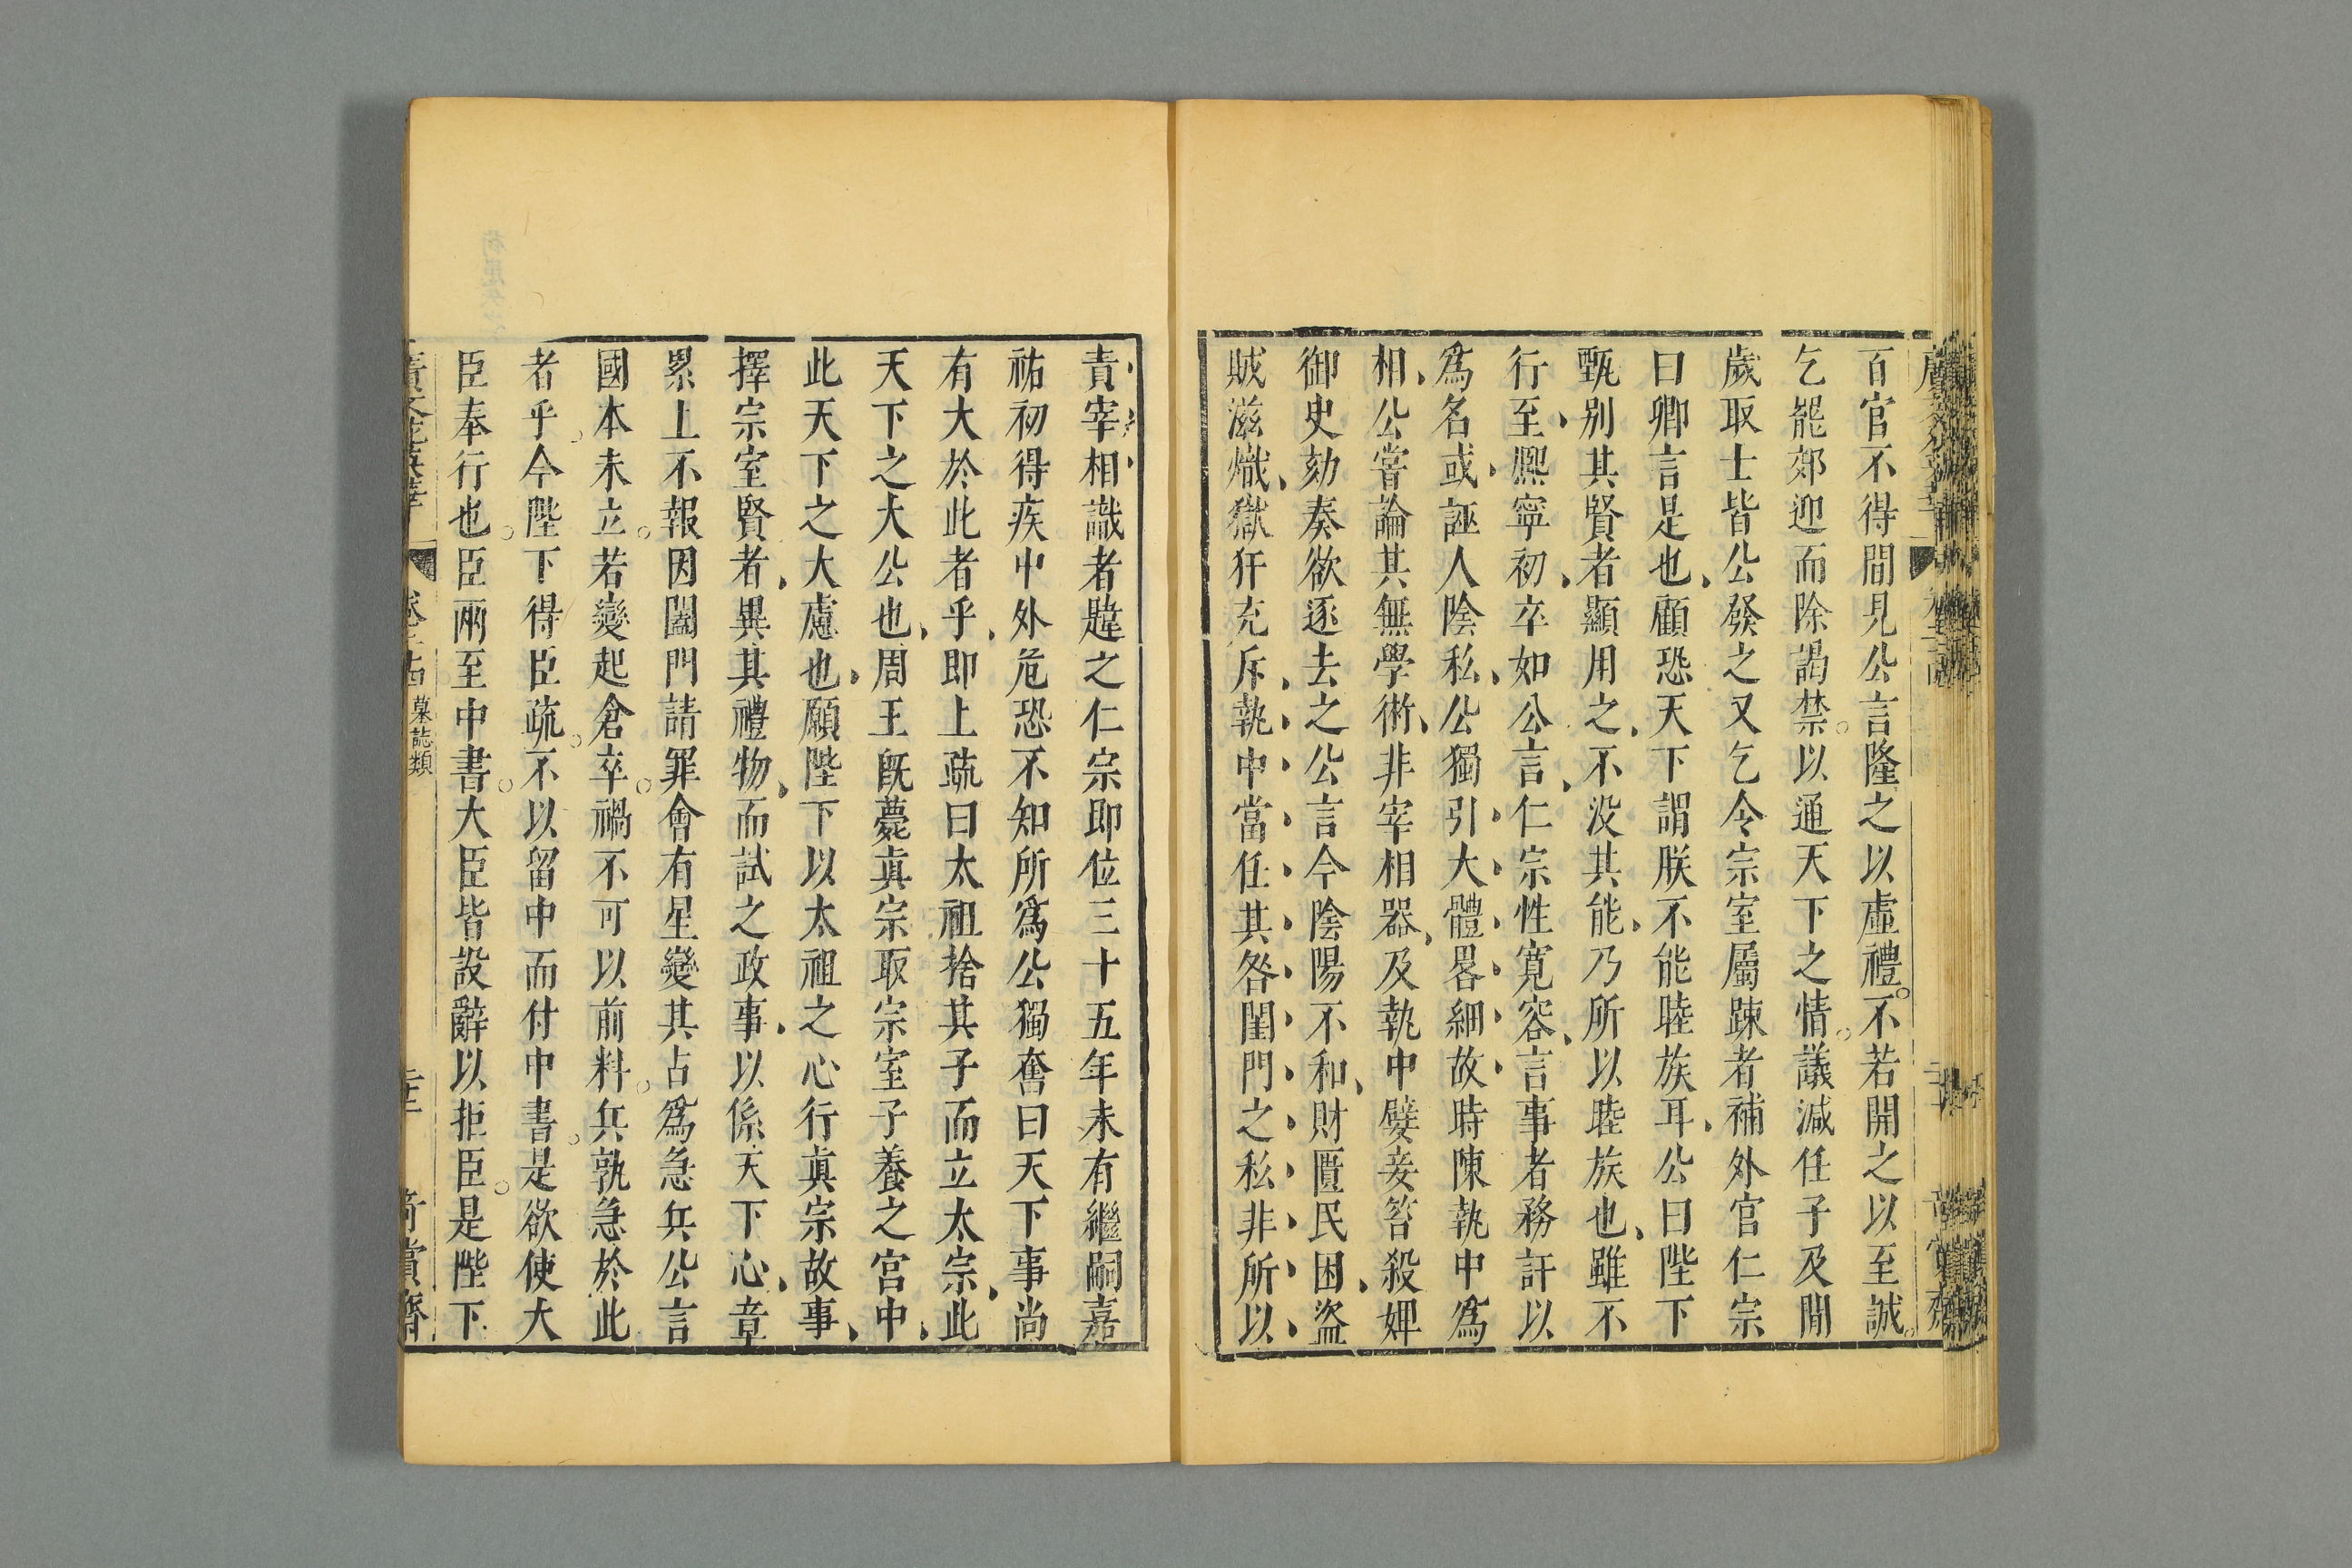 百官不得間見公言隆之以虛禮不若開之以至誠
乞罷郊迎而除謁禁以通天下之情議減任子及閒
歲取士皆公發之又乞令宗室屬踈者補外官仁宗
曰卿言是也顧恐天下謂朕不能睦族耳公曰陛下
甄别其賢者顯用之不没其能乃所以睦族也雖不
行至熈寧初卒如公言仁宗性寛容言事者務訐以
爲名或誣人陰私公獨引大體畧細故時陳執中爲
相公嘗論其無學術非宰相器及執中嬖妾笞殺婢
御史劾奏欲逐去之公言今陰陽不和財匱民困盗
賊滋熾獄犴充斥執中當任其咎閨門之私非所以
責宰相識者韙之仁宗即位三十五年未有繼嗣嘉
祐初得疾中外危恐不知所爲公獨奮曰天下事尚
有大於此者乎即上疏曰太祖捨其子而立太宗此
天下之大公也周王旣薨眞宗取宗室子養之宫中
此天下之大慮也願陛下以太祖之心行眞宗故事
擇宗室賢者異其禮物而試之政事以係天下心章
累上不報因闔門請罪會有星變其占爲急兵公言
國本未立若變起倉卒禍不可以前料兵孰急於此
者乎今陛下得臣疏不以留中而付中書是欲使大
臣奉行也臣兩至中書大臣皆設辭以拒臣是陛下
墓誌類
奇賞齋